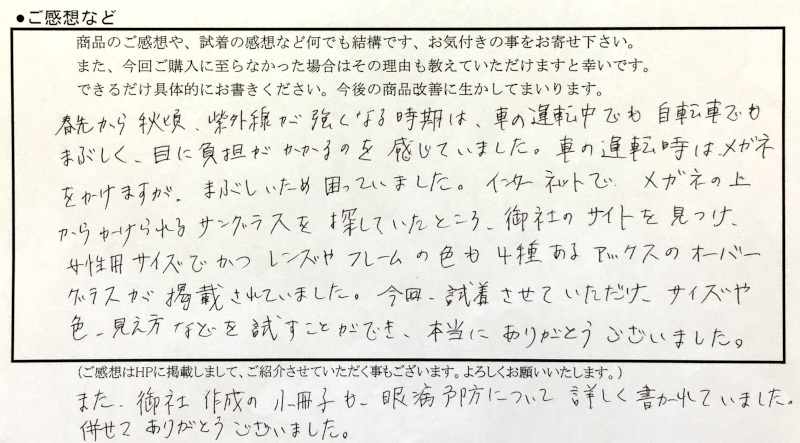 ●ご感想など
商品のご感想や、試着の感想など何でも結構です、お気付きの事をお寄せ下さい。
また、今回ご購入に至らなかった場合はその理由も教えていただけますと幸いです。
できるだけ具体的にお書きください。今後の商品改善に生かしてまいります。
春先から秋頃、紫外線が強くなる時期は、車の運転中でも自転車でも
まぶしく、目に負担がかかるのを感じていました。車の運転時は、メガネ
をかけますが、まぶしいため困っていました。インターネットで、メガネの上
からかけられるサングラスを探していたところ、御社のサイトを見つけ、
女性用サイズでかつレンズやフレームの色も4種あるアックスのオーバー
グラスが掲載されていました。今回、試着させていただけ、サイズや
色、見え方などを試すことができ、本当にありがとうございました。
(ご感想はHPに掲載しまして、ご紹介させていただく事もございます。よろしくお願いいたします。)
また、御社作成の小冊子も、眼病予防について詳しく書かれていました。
併せてありがとうございました。